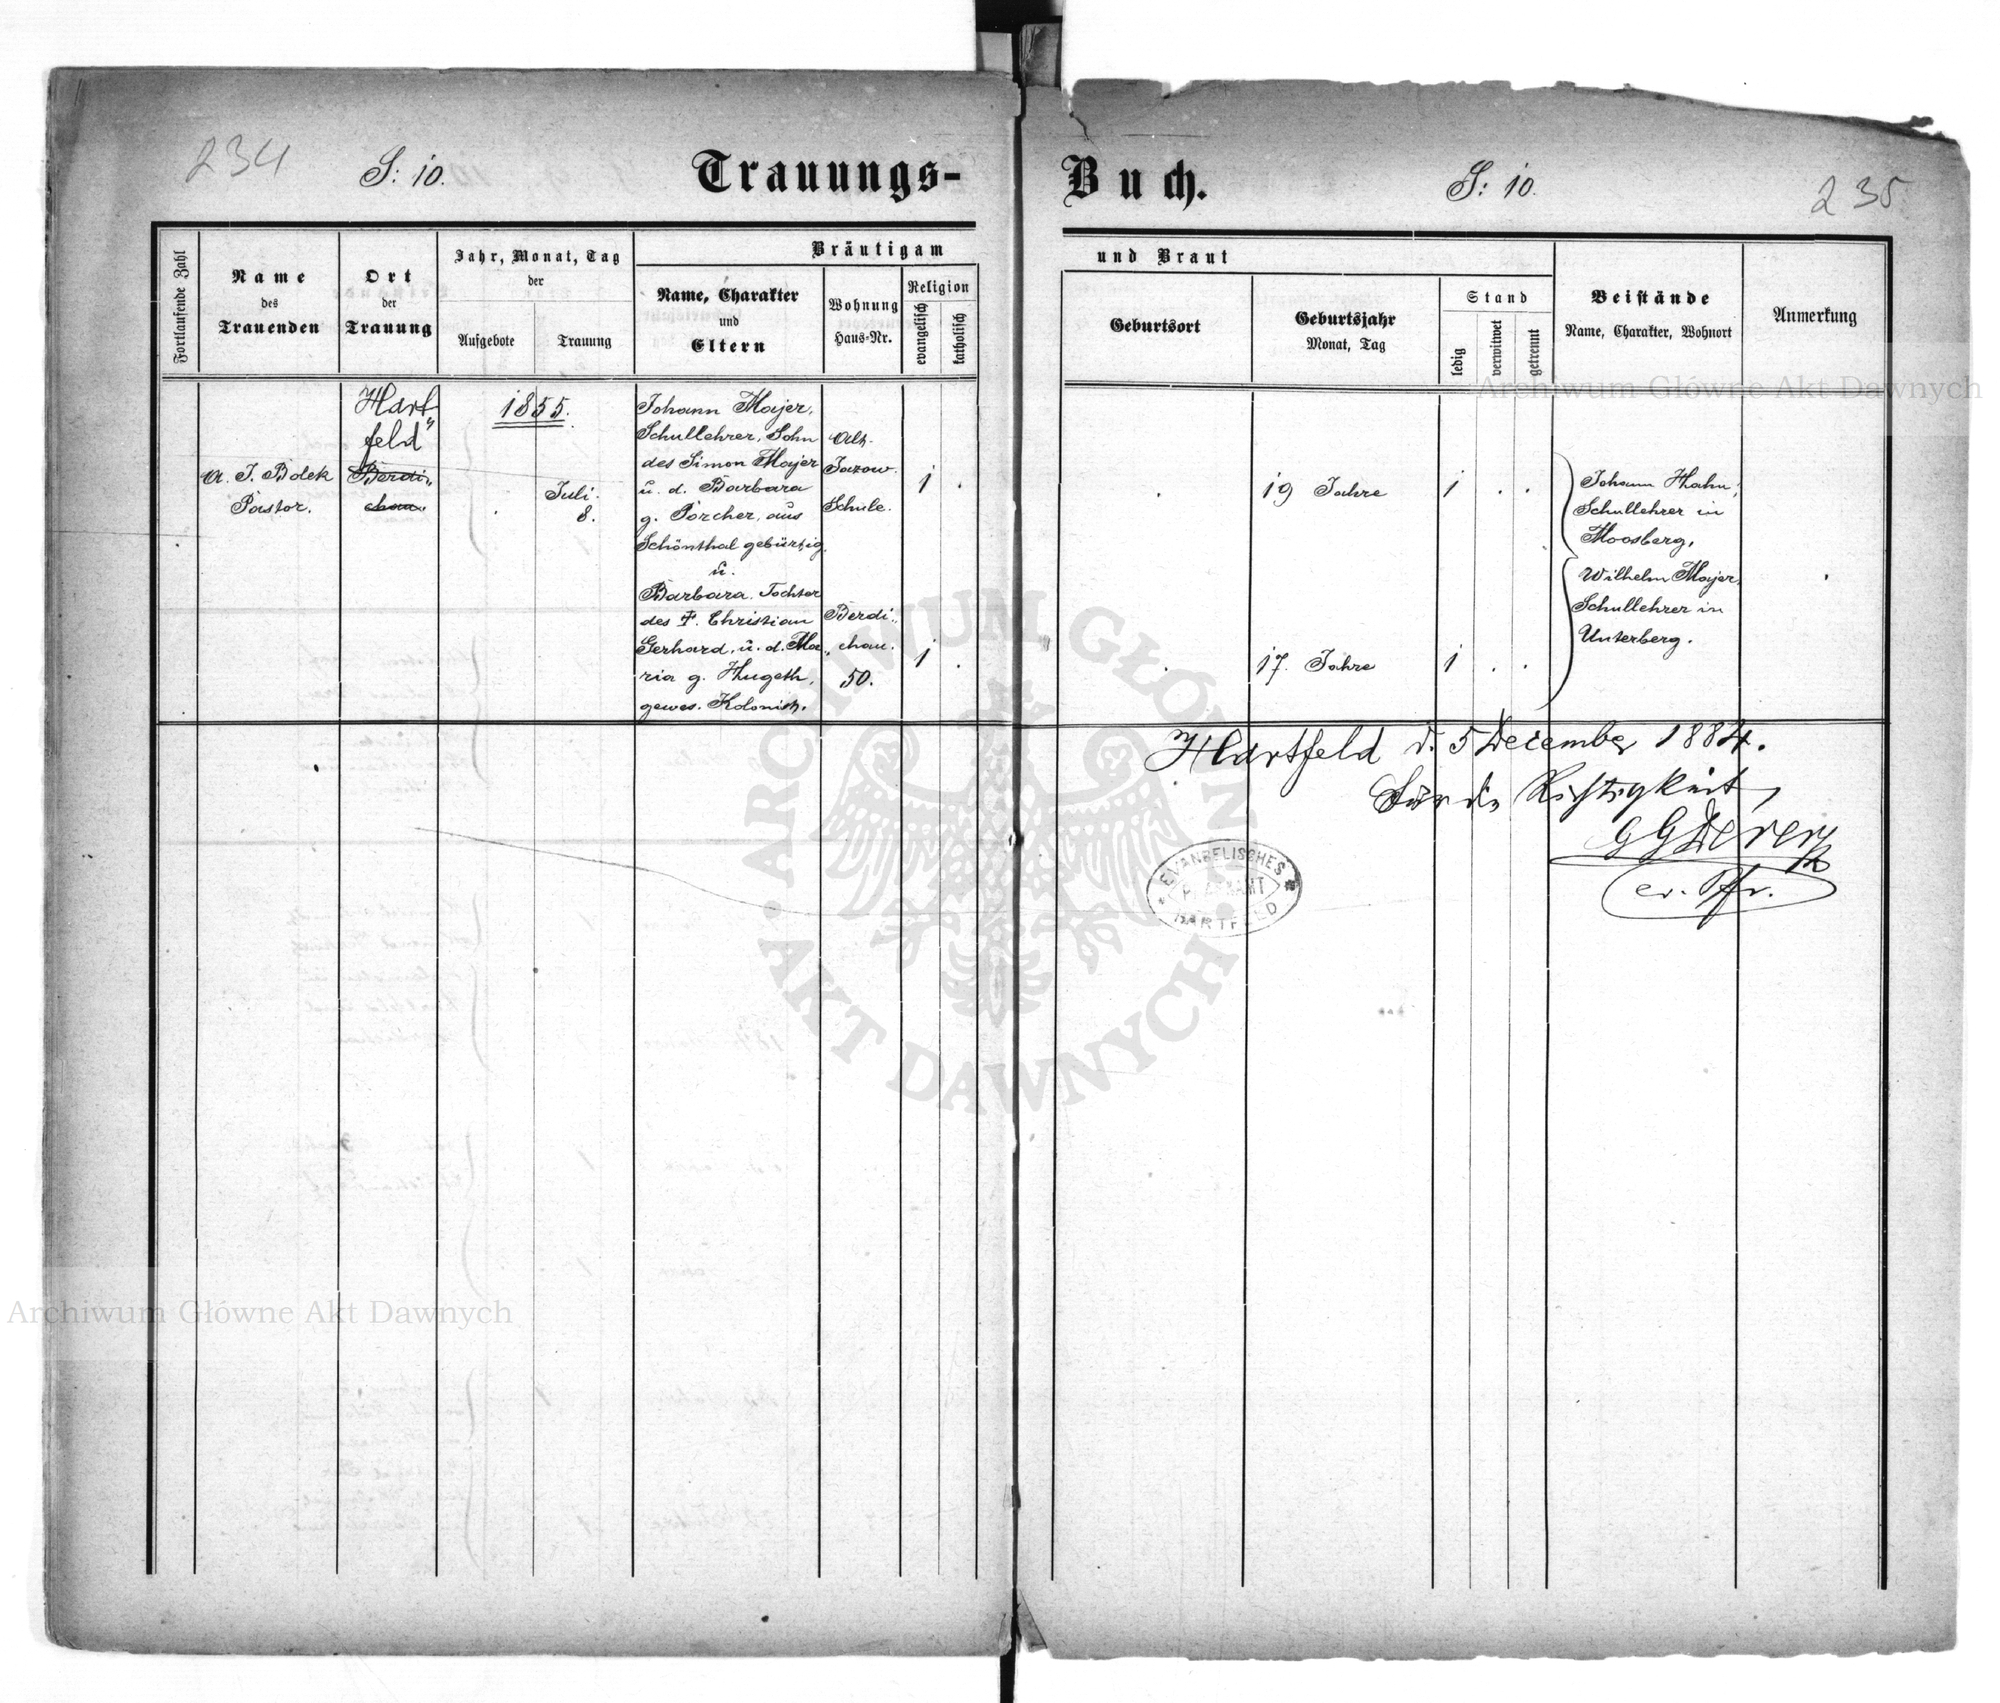 234
S: 10.
Trauungs-
Buch.
S: 10.
235
Fortlaufende Zahl
Name
des
Trauenden
Ort
der
Trauung
Jahr, Monat, Tag
der
Aufgebote
Trauung
Bräutigam
Name, Charakter
und
Eltern
Wohnung
Haus-Nr.
Religion
evangelisch
katholisch
und Braut
Geburtsort
Geburtsjahr
Monat, Tag
Stand
ledig
verwitwet
getrennt
Beistände
Name, Charakter, Wohnort
Anmerkung
A. J. Bolek
Pastor.
Hart„
feld
Berdi„
chau.
1855.
Juli.
8.
Johann Majer,
Schullehrer, Sohn
des Simon Majer
u. d. Barbara
g. Porcher, aus
Schönthal gebürtig,
u.
Barbara, Tochter
des †. Christian
Gerhard, u. d. Ma„
ria g. Hugeth,
gewes. Kolonist.
Alt-
Jazow.
Schule.
Berdi„
chau.
50.
1 .
1 .
. 19 Jahre 1 . .
. 17. Jahre 1 . .
Johann Hahn,
Schullehrer in
Moosberg,
Wilhelm Majer,
Schullehrer in
Unterberg.
.
Hartfeld d. 5 December 1884.
Für die Richtigkeit,
ev. Pfr.
EVANGELISCHES
PFARRAMT
HARTFELD
Archiwum Główne Akt Dawnych
ARCHIWUM GŁÓWNE
AKT DAWNYCH
Archiwum Główne Akt Dawnych